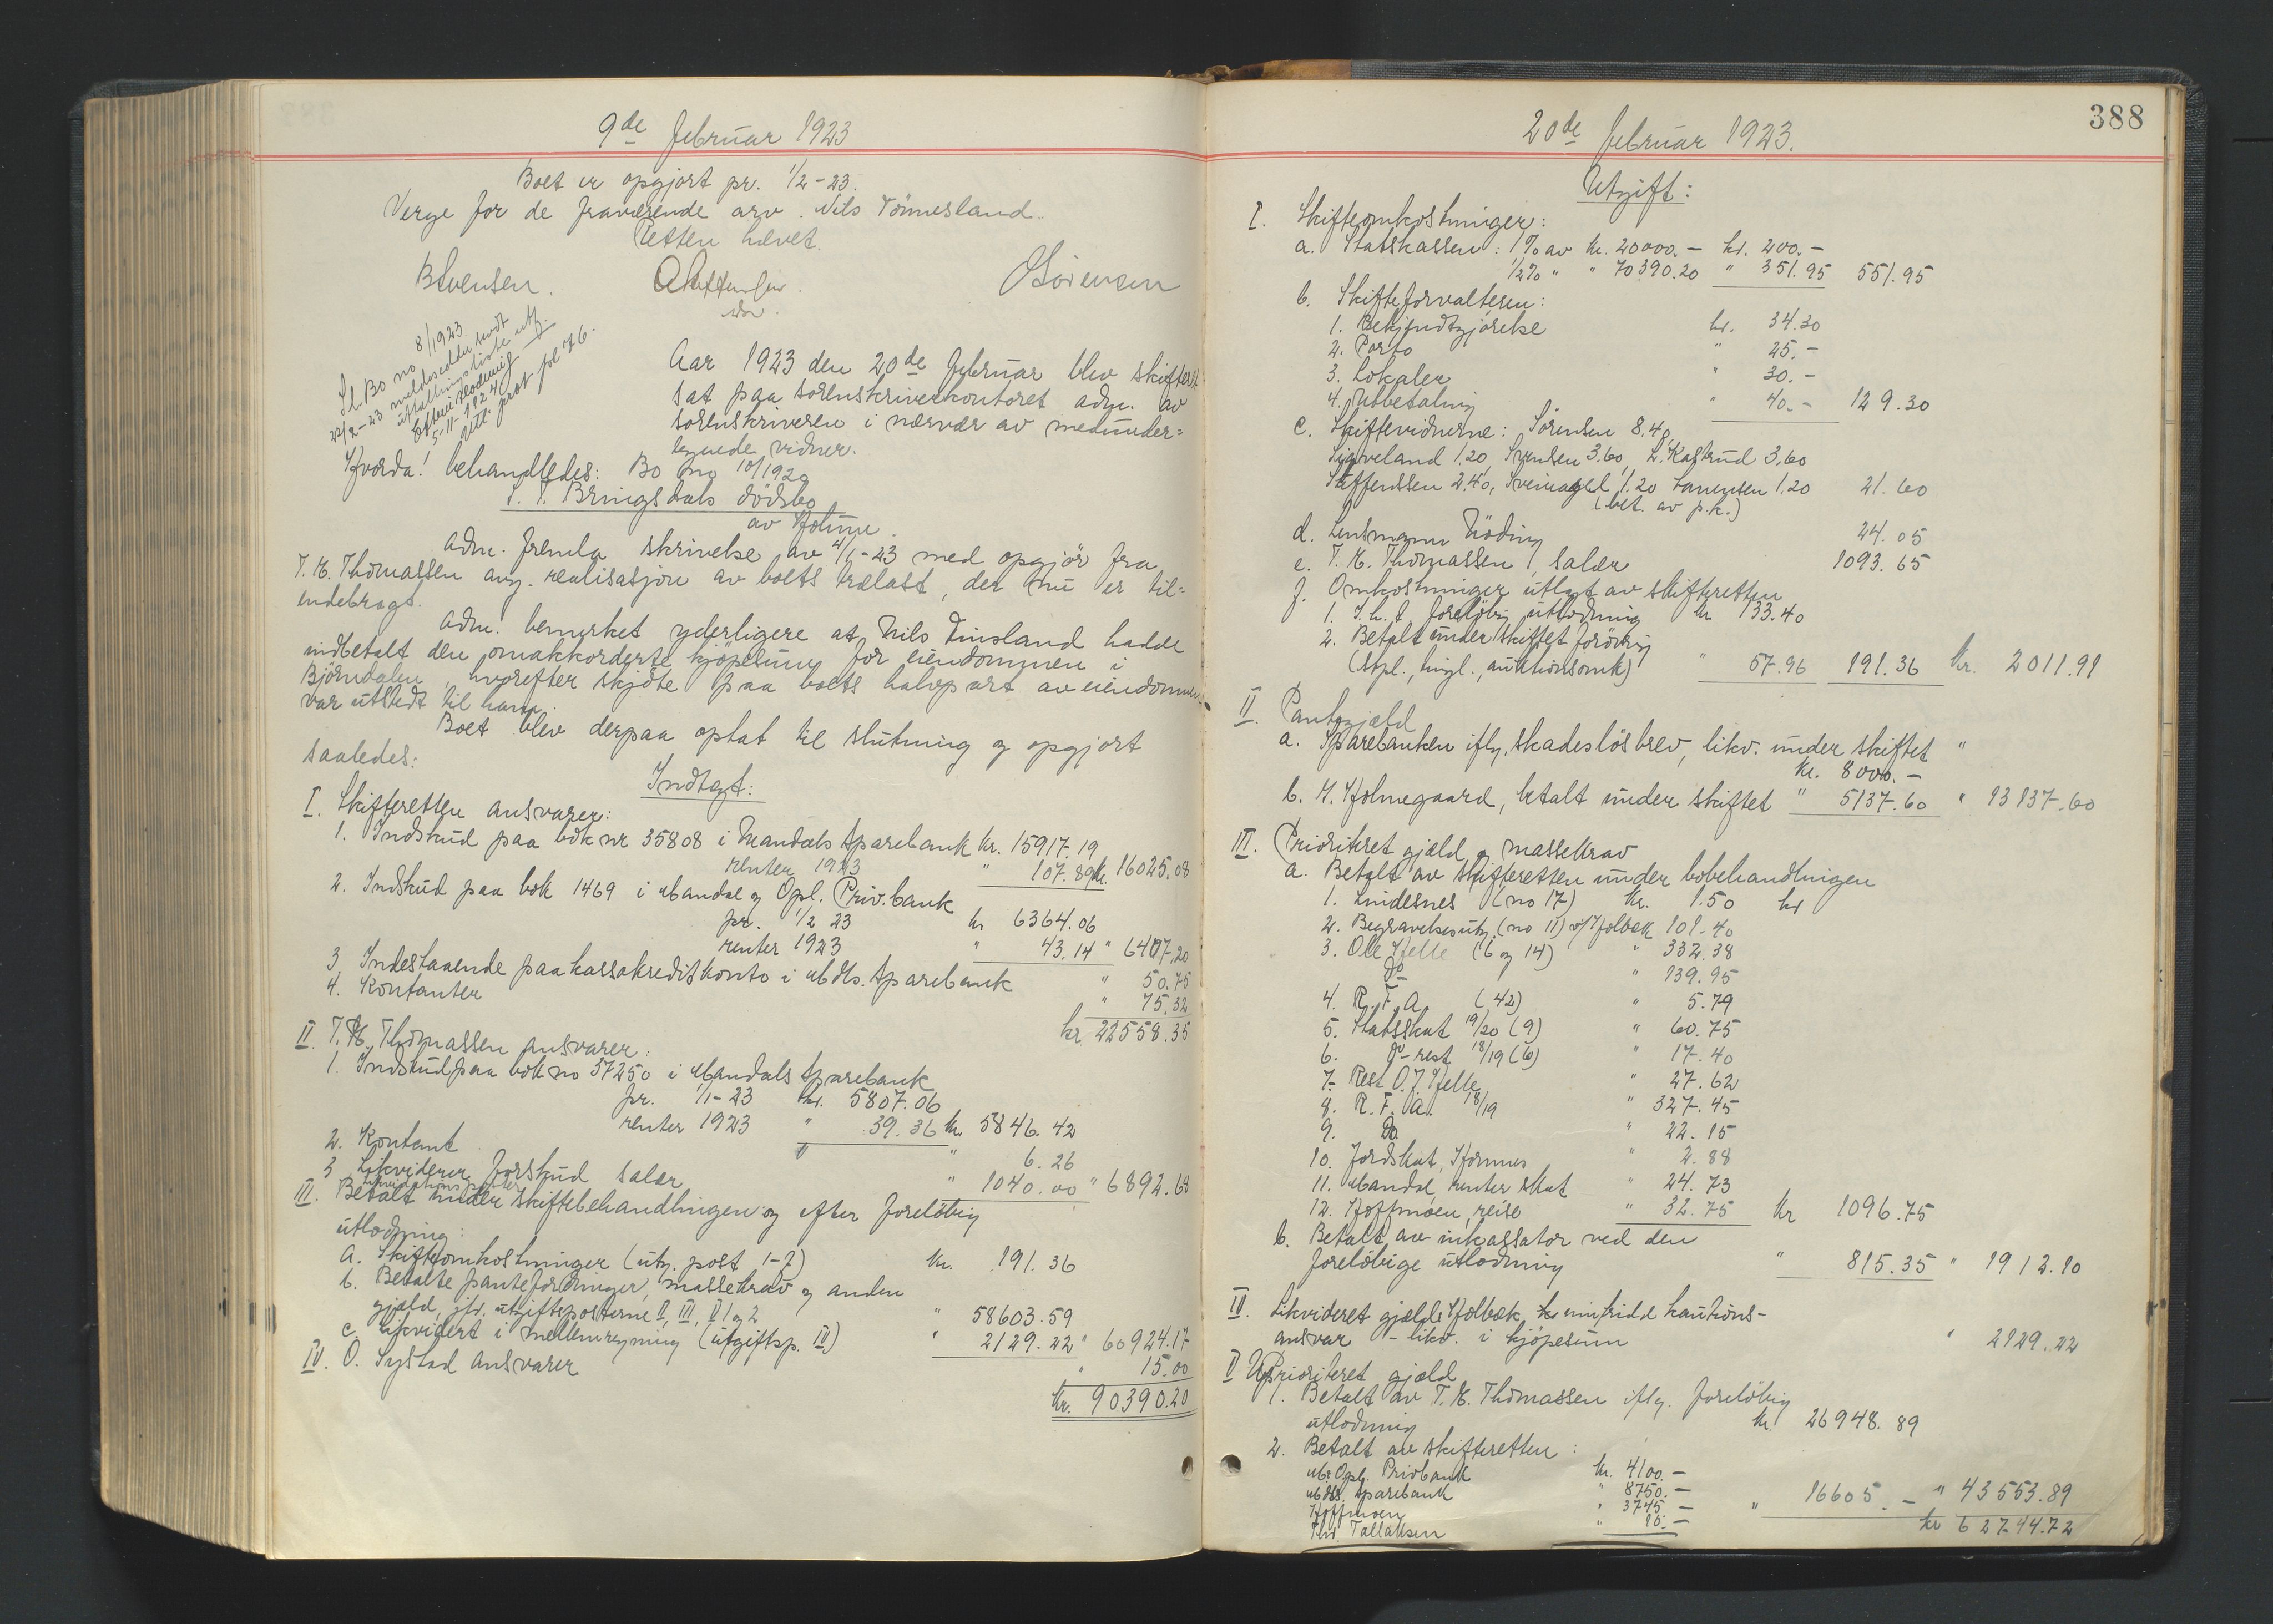 9de Februar 1923
Boet er opgjort pr. 1/2-23.
Verge for de fraværende arv. Nils Tönnesland.
Retten hævet.
BEvensen. OSörensen
Sl. Bo no 8/1923
22/2-23 meldesedler sendt
5-11-1924
Aar 1923 den 20de februar blev skifteret
sat paa sorenskriverkontoret adm. av
sorenskriveren i nærvær av medunder-
tegnede vidner.
Hvorda! behandledes: Bo no 10/1920
T. T. Bringsdals dödsbo
av Holme.
Adm. fremla skrivelse av 4/1-23 med opgjör fra
T. K. Thomassen ang. realisasjon av boets trælast, der nu er til-
endebragt.
Adm. bemerket yderligere at Nils Finsland hadde
indbetalt den omakkorderte kjöpesum for eiendommen i
Björndalen, hvorefter skjöte paa boets halvpart av eiendommen
var utstedt til ham.
Boet blev derpaa optat til slutning og opgjort
saaledes:
Indtægt:
I. Skifteretten ansvarer:
1. Indskud paa bok nr 35808 i Mandals Sparebank kr. 15917.19
renter 1923 " 107.89 kr. 16025.08
2. Indskud paa bok 1469 i Mandal og Opl. Priv.bank
pr. 1/2 23 kr 6364.06
renter 1923 " 43.14 " 6407.20
3 Indestaaende paa kassakreditkonto i Mdls. Sparebank " 50.75
4. Kontanter " 75.32
kr 22558.35
II. T. K. Thomassen ansvarer:
1. Indskud paa bok no 37250 i Mandals Sparebank
pr. 1/1-23 kr. 5807.06
renter 1923 " 39.36 kr. 5846.42
2. Kontant " 6.26
3 Likviderer forskud salær " 1040.00 " 6892.68
III. Betalt under skiftebehandlingen og efter forelöbig
utlodning:
a. Skifteomkostninger (utg. post 1-f) kr. 191.36
b. Betalte pantefordringer, massekrav og anden
gjæld, jfr. utgiftsposterne II, III, V 1 og 2 " 58603.59
c. Likvidert i mellemregning (utgiftsp. IV) " 2129.22 " 60924.17
IV. O. Systad ansvarer " 15.00
kr. 90390.20
388
20de Februar 1923.
Utgift:
I. Skifteomkostninger:
a. Statskassen: 1% av kr. 20000.- kr. 200.-
1/2% " " 70390.20 " 351.95 551.95
b. Skifteforvalteren:
1. Bekjendtgjörelse kr. 34.30
2. Porto " 25.-
3. Lokaler " 30.-
4. Utbetaling " 40.- 129.30
c. Skiftevidnerne: Sörensen 8.40,
Sigveland 1.20, Svensen 3.60, L. Kastrud 3.60
Steffensen 2.40, 1.20 1.20 21.60
(bet. av p.k.)
d. Lensmann Nöding 24.05
e. T. K. Thomassen, salær 1093.65
f. Omkostninger utlagt av skifteretten
1. I. h. t. forelöbig utlodning kr 133.40
2. Betalt under skiftet forövrig
(stpl., tingl., auktionsomk) " 57.96 191.36 kr. 2011.91
II. Pantegjæld
a. Sparebanken iflg. skadeslösbrev, likv. under skiftet "
kr. 8000.-
b. K. Holmegaard, betalt under skiftet " 5137.60 " 13137.60
III. Prioriteret gjæld og massekrav
a. Betalt av skifteretten under bobehandlingen
1. Lindesnes (no 17) kr. 1.50 kr
2. Begravelsesutg. (no 11) v/Holbæk 101.40
3. Ole Helle (6 og 14) " 332.38
Do " 139.95
4. R. F. A. (42) " 5.79
5. Statsskat 19/20 (9) " 60.75
6. Do - rest 18/19 (6) " 17.40
7. Rest O. J. Helle " 27.62
8. R. F. A. 18/19 " 327.45
9. Do " 22.15
10. Jordskat, " 2.88
11. Mandal, renter skat " 24.73
12. Hoffmoen, reise " 32.75 kr 1096.75
b. Betalt av inkassator ved den
forelöbige utlodning " 815.35 " 1912.10
IV. Likvideret gjæld Holbæk kautions-
ansvar - likv. i kjöpesum " 2129.22
V Uprioriteret gjæld
1. Betalt av T. K. Thomassen iflg. forelöbig
utlodning kr. 26948.89
2. Betalt av skifteretten:
M. Opl. Privbank kr. 4100.-
Mdls. Sparebank " 8750.-
Hoffmoen " 3745.-
Thv. Tallaksen " 10.- " 16605.- " 43553.89
kr 62744.72